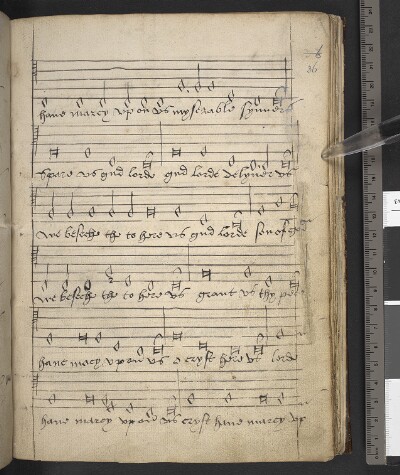 86
haue marcy vpon vs myserable synners
Spare vs gud lorde gud lorde delyuer vs
we beseche the to here vs gud lorde son of god
we beseche the to here vs grant vs thy
haue marcy vpon vs o cryst here vs lorde
haue marcy vpon vs cryst haue marcy vp